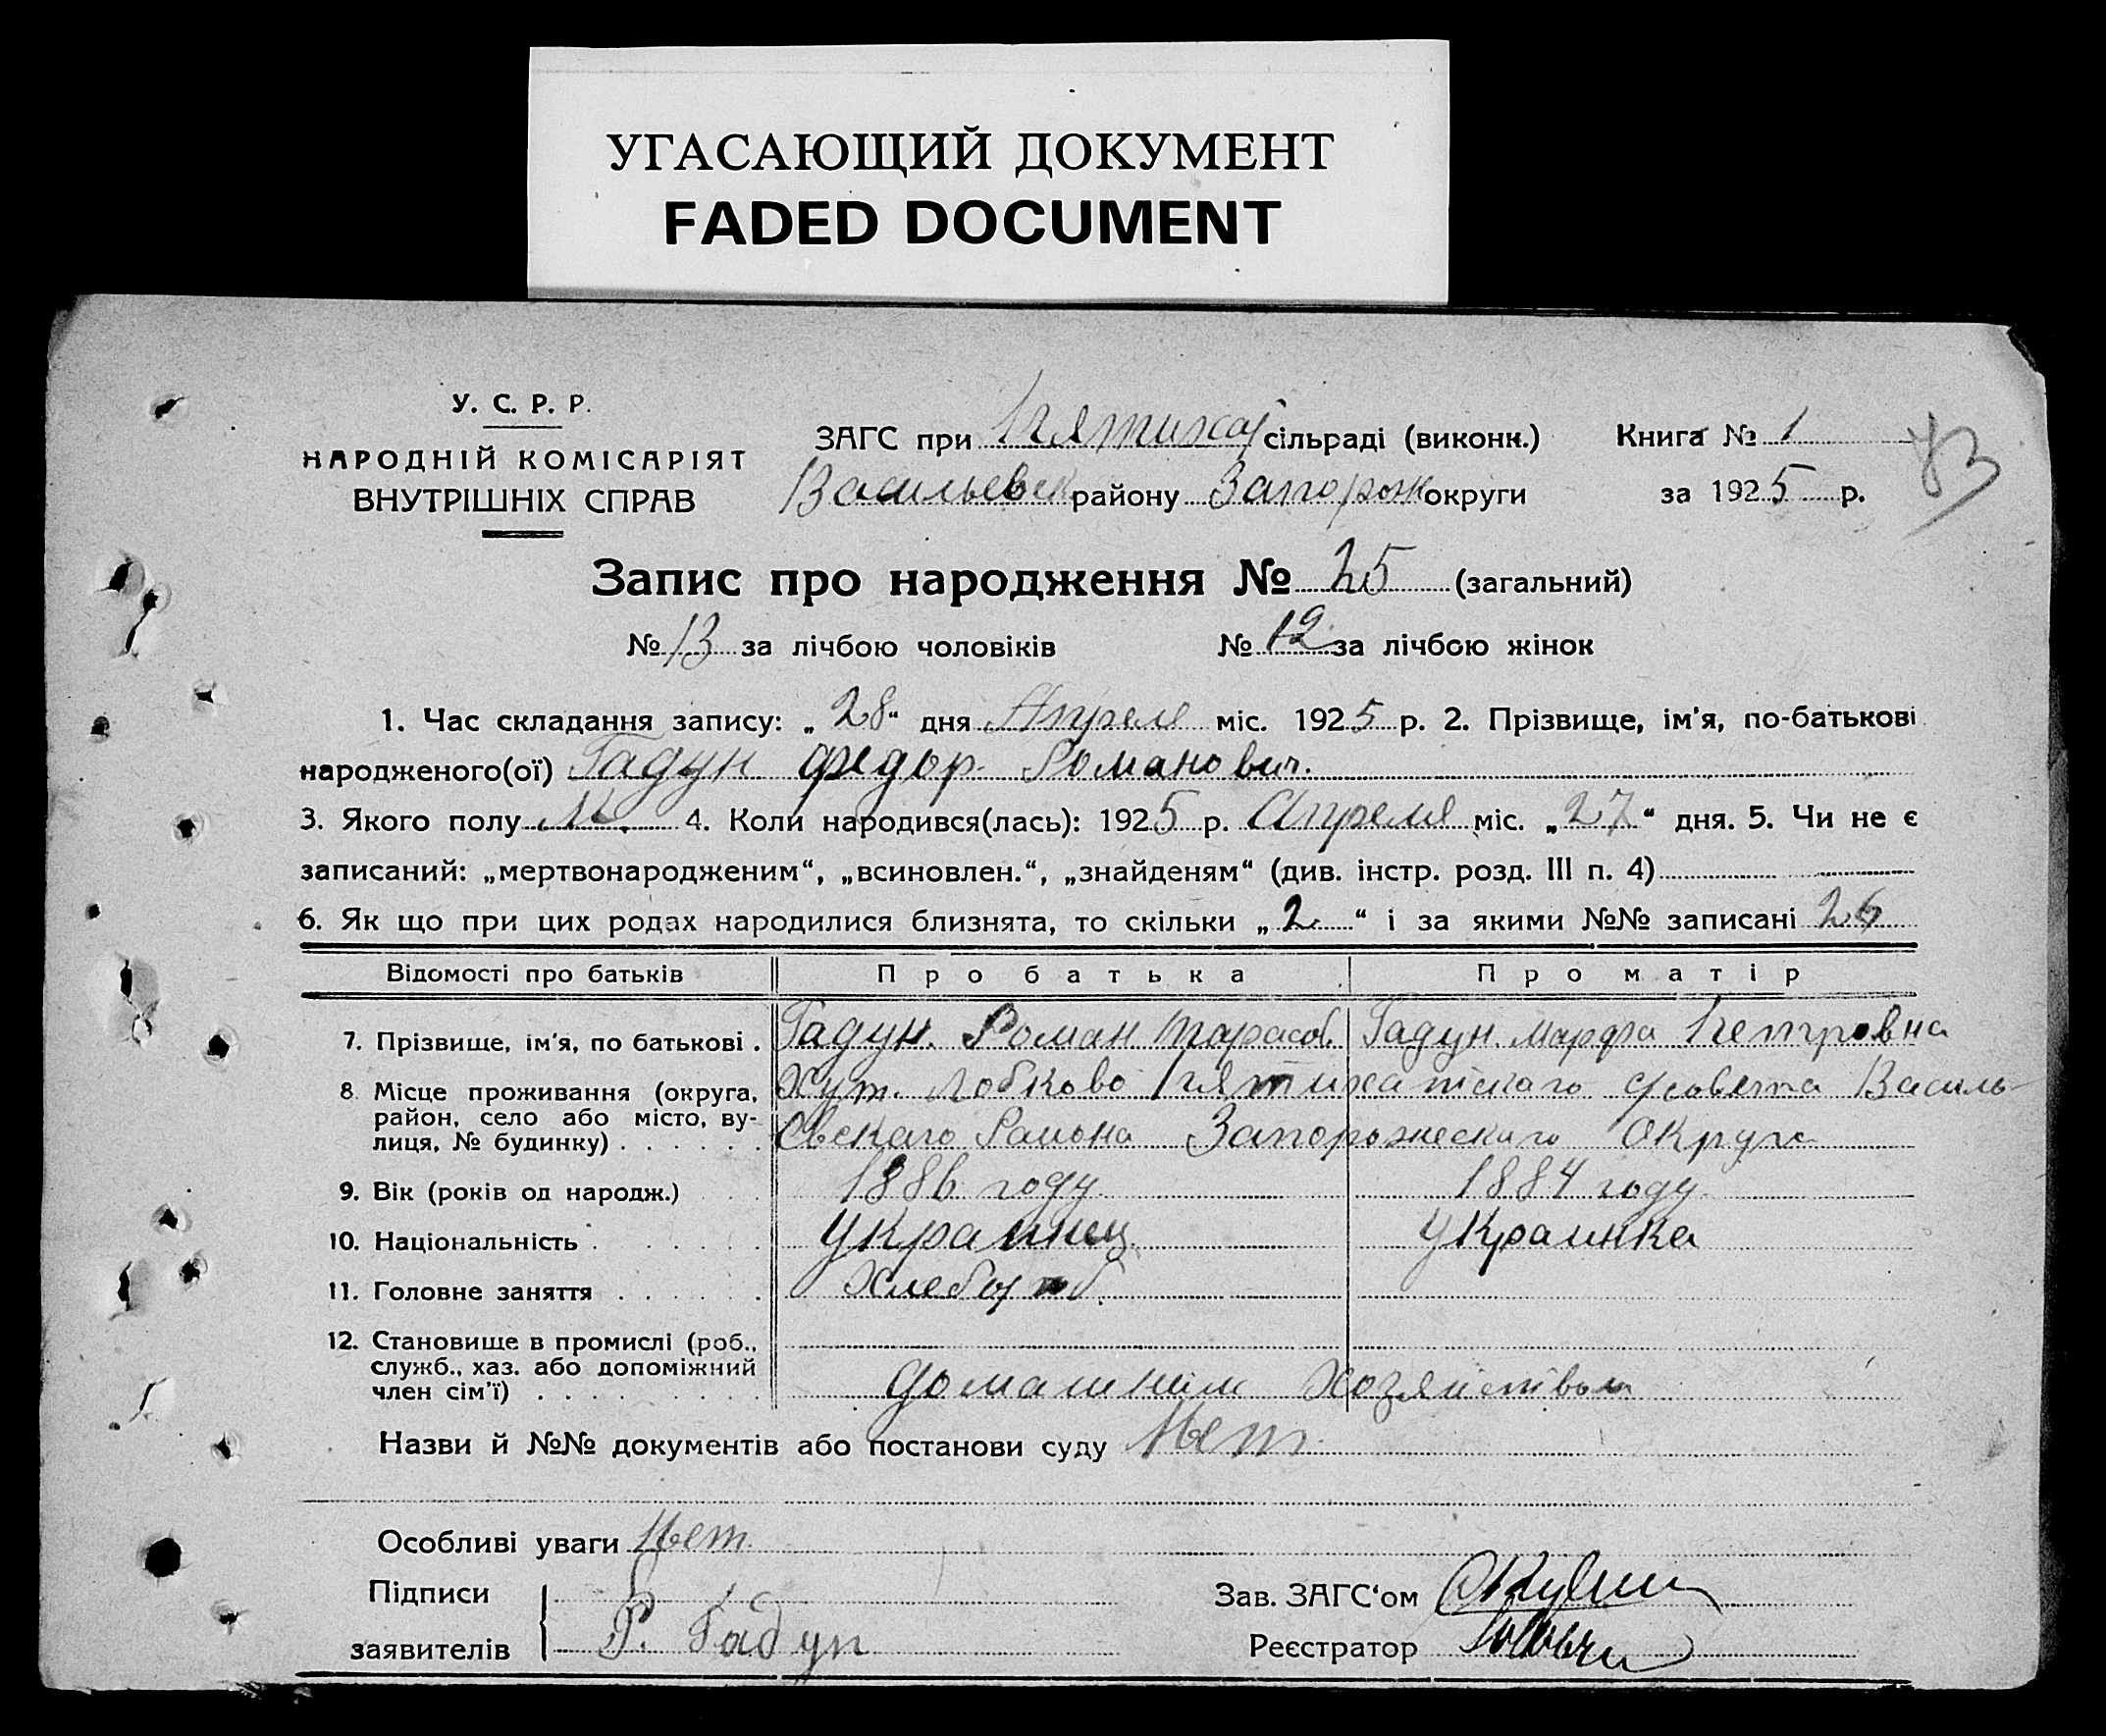 УГАСАЮЩИЙ ДОКУМЕНТ
FADED DOCUMENT
У. С. Р. Р.
НАРОДНІЙ КОМІСАРІЯТ
ВНУТРІШНІХ СПРАВ
ЗАГС при Пятихат сільраді (виконк.)
Васильевск району Запорож округи
Книга № 1
за 1925 р.
83
Запис про народження № 25 (загальний)
№ 13 за лічбою чоловіків № 12 за лічбою жінок
1. Час складання запису: „28“ дня Апреля міс. 1925 р. 2. Прізвище, ім'я, по-батькові
народженого(ої) Гадун Федор Романович.
3. Якого полу М. 4. Коли народився(лась): 1925 р. Апреля міс. „27“ дня. 5. Чи не є
записаний: „мертвонародженим“, „всиновлен.“, „знайденям“ (див. інстр. розд. III п. 4)
6. Як що при цих родах народилися близнята, то скільки „2“ і за якими №№ записані 26
Відомості про батьків Про батька Про матір
7. Прізвище, ім'я, по батькові . Гадун. Роман Тарасов. Гадун. Марфа Петровна
8 Місце проживання (округа, Хут. Лобково Пятихатскаго с/совета Василь-
район, село або місто, ву-
лиця, № будинку) . . . . . . евскаго Района Запорожескаго Округа
9. Вік (років од народж.) 1886 году 1884 году.
10. Національність . Украинец. Украинка
11. Головне заняття . . . . . . Хлебороб.
12. Становище в промислі (роб.,
служб., хаз. або допоміжний
член сім'ї) . . . . . . . . домашним хозяйством
Назви й №№ документів або постанови суду Нет.
Особливі уваги Нет.
Підписи
заявителів Р. Гадун
Зав. ЗАГС'ом
Реєстратор